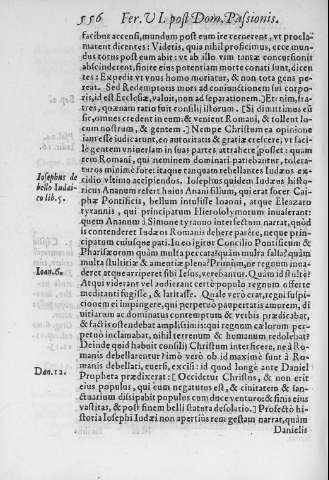 556 Fer. VI. post Dom. Passionis.
facibus accensi, mundum post eum ire cernerent, vt procla-
marent dicentes: Videtis, quia nihil proficimus, ecce mun-
dus totus post eum abit: vt ab illo vim tantæ concursionis
abscinderent, finire eius potentiam morte conati sunt, di-
centes: Expedit vt vnus homo moriatur, & non tota gens pe-
reat. Sed Redemptoris mors ad coniunctionem sui corpo-
ris, id est Ecclesiæ, valuit, non ad separationem.] Etenim, fra-
tres, quænam ratio fuit consilij istorum? [Si dimittimus eũ
sic, omnes credent in eum: & venient Romani, & tollent lo-
cum nostrum, & gentem.] Nempe Christum ea opinione
iam esse iudicarunt, eo authoritatis & gratiæ crescere, vt faci-
le gentem vniuersam in suas partes attrahere posset: quam
rem Romani, qui neminem dominari patiebantur, tolera-
turos minimè fore: itaque tanquam rebellantes Iudæos ex-
cidio vltimo accipiendos. Iosephus quidem Iudæus histo-
ricus Ananum refert huius Anani filium, qui erat socer Cai-
phæ Pontificis, bellum intulisse Ioanni, atque Eleazaro
tyrannis, qui principatum Hierosolymorum inuaserant:
quem Ananum à Simone tyranno interfectum narrat, quòd
is contenderet Iudæos Romanis debere parere, neque prin-
cipatum cuiusque pati. In eo igitur Concilio Pontificum &
Pharisæorum quàm multa peccata? quàm multa falsa? quàm
multa stultitiæ & amentiæ plena? Primùm, ne regnum inua-
deret atque arriperet sibi Iesus, verebantur. Quàm id stultè?
Atqui viderant vel audierant certè populo regnum offerre
meditanti fugisse, & latitasse. Quale verò erat, regni suspi-
cionem ei impingere, qui perpetuò paupertatis amorem, di-
uitiarum ac dominatus contemptum & verbis prædicabat,
& factis ostendebat amplissimis: qui regnum cælorum per-
petuò inclamabat, nihil terrenum & humanum redolebat?
Deinde quid habuit consilij Christum interficere, ne à Ro-
manis debellarentur? imò verò ob id maximè sunt à Ro-
manis debellati, euersi, excisi: id quod longe ante Daniel
Propheta prædixerat: [Occidetur Christus, & non erit
eius populus, qui eum negaturus est, & ciuitatem & san-
ctuarium dissipabit populus cum duce venturo: & finis eius
vastitas, & post finem belli statuta desolatio.] Profectò hi-
storia Iosephi Iudæi non apertiùs rem gestam narrat, quàm
Danielis
Iosephus de
bello Iudai-
co lib. 5.
Ioan. 6.
Dan. 12.